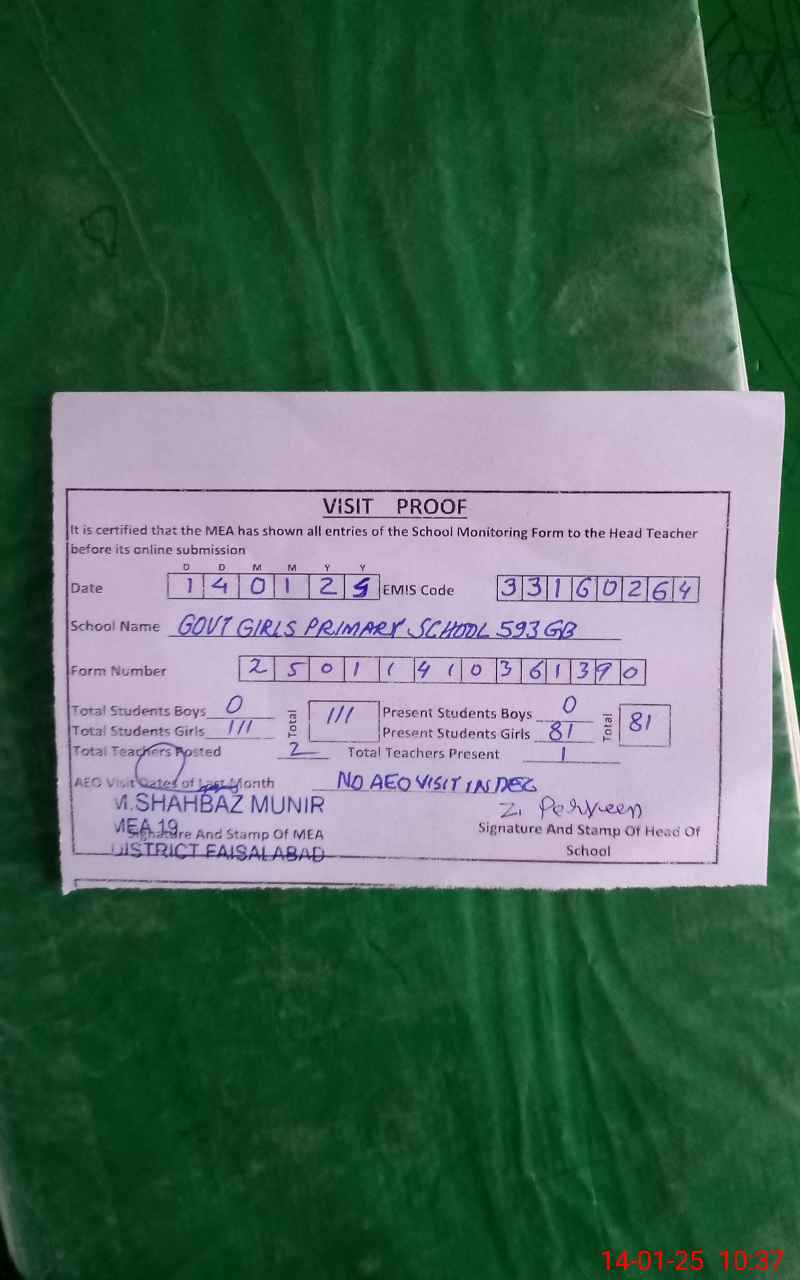 VISIT PROOF
It is certified that the MEA has shown all entries of the School Monitoring Form to the Head Teacher
before its online submission
D D M M Y Y
Date 1 4 0 1 2 5 EMIS Code 3 3 1 6 0 2 6 4
School Name GOVT GIRLS PRIMARY SCHOOL 593 GB
Form Number 2 5 0 1 1 4 1 0 3 6 1 3 9 0
Total Students Boys 0 Total 111 Present Students Boys 0 Total 81
Total Students Girls 111 Present Students Girls 81
Total Teachers Posted 2 Total Teachers Present 1
AEO Visit Dates of Last Month NO AEO VISIT IN DEC
M.SHAHBAZ MUNIR Z. Perveen
MEA 19
Signature And Stamp Of MEA Signature And Stamp Of Head Of
School
DISTRICT FAISALABAD
14-01-25 10:37